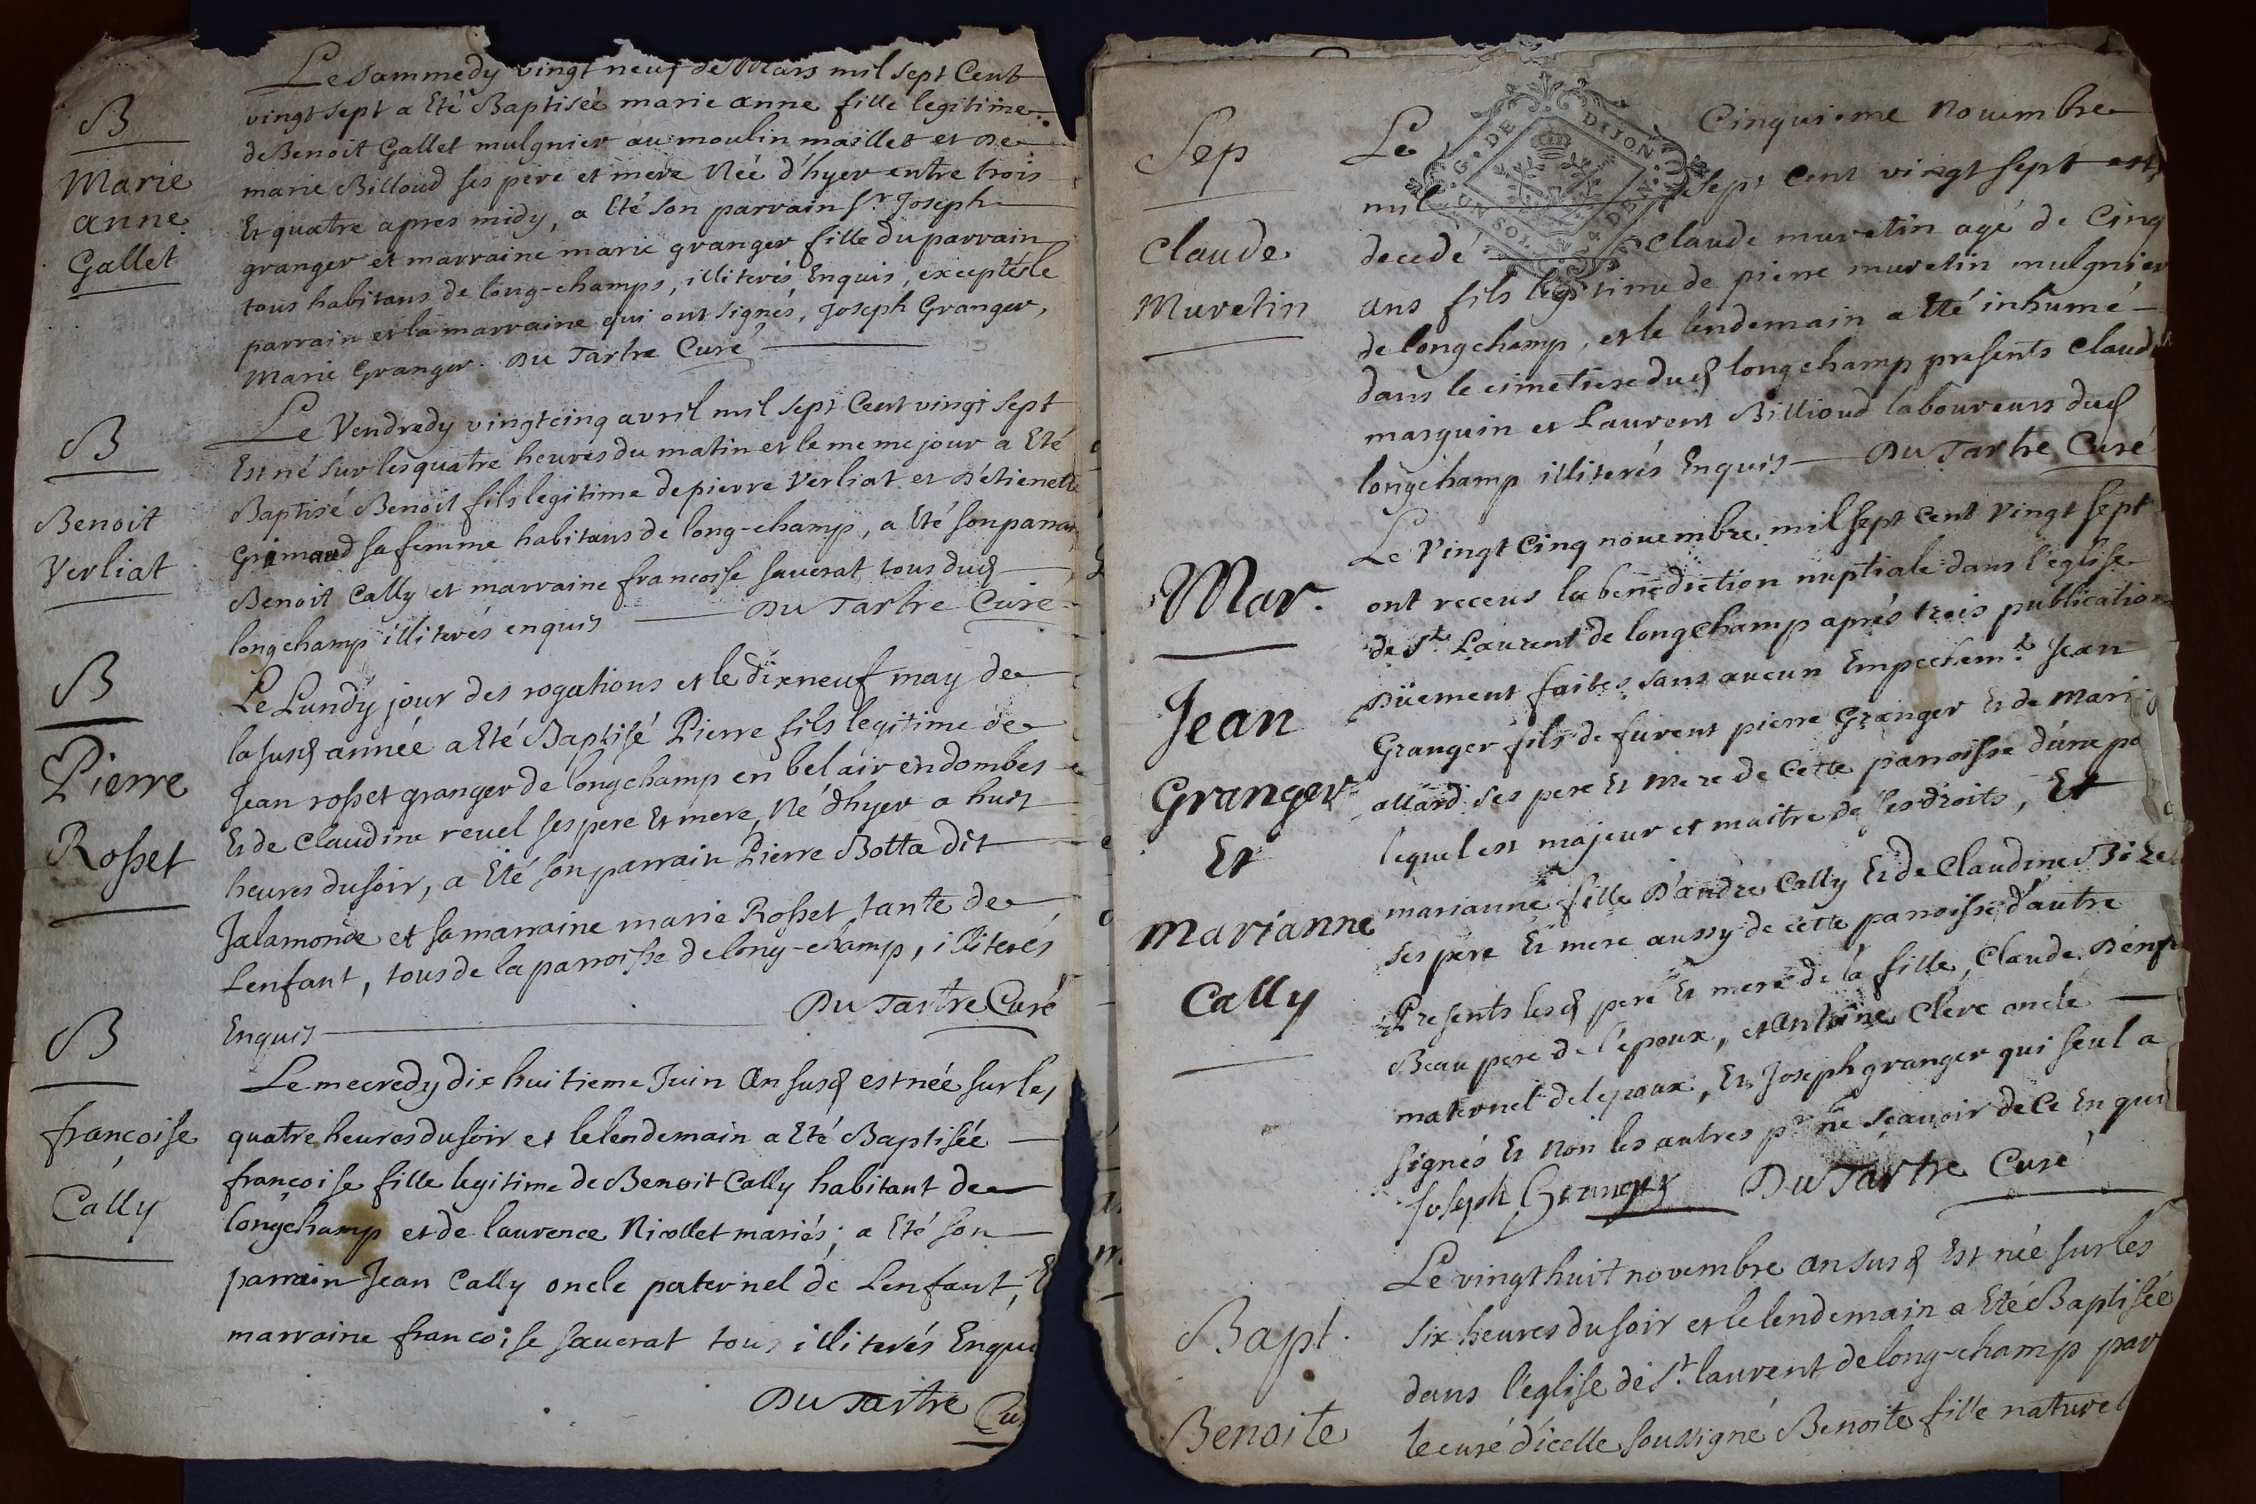 B
Marie
anne
Gallet
Le Sammedy vingt neuf de Mars mil sept Cent
vingt sept a Eté Baptisée marie anne fille legitime
de Benoit Gallet mulgnier au moulin maillet et De
marie Billoud ses pere et mere Née d'hyer entre trois
Et quatre apres midy, a Eté son parrain Sr Joseph
granger et marraine marie granger fille du parrain
tous habitans de long-champs, illiterés Enquis, exceptés le
parrain et la marraine qui ont signés, Joseph Granger,
Marie Granger. Du Tartre Curé
B
Benoit
Verliat
Le Vendredy vingt cinq avril mil sept Cent vingt sept
Est né sur les quatre heures du matin et le meme jour a Eté
Baptisé Benoit fils legitime de pierre Verliat et D'étienette
Grimaud sa femme habitans de long-champ, a Eté son parrain
Benoit Cally et marraine francoise sauerat tous dud
longchamp illiterés enquis Du Tartre Curé
B
Pierre
Rosset
Le Lundy jour des rogations et le dixneuf may de
la susd année a Eté Baptisé Pierre fils legitime de
Jean rosset granger de longchamp en bel air en dombes
Et de Claudine reuel ses pere Et mere, Né d'hyer a huit
heures du soir, a Eté son parrain Pierre Botta dit
Jalamonde et sa marraine marie Rosset tante de
Lenfant, tous de la parroisse de long-champ, illiterés
Enquis Du Tartre Curé
B
françoise
Cally
Le mecredy dix huitieme Juin an susd est née sur les
quatre heures du soir et le lendemain a Eté Baptisée
françoise fille legitime de Benoit Cally habitant de
longchamp et de laurence Nicollet mariés; a Eté son
parrain Jean Cally oncle paternel de Lenfant,
marraine francoise sauerat tous illiterés Enqui
Du Tartre Cu
G. DE DIJON
Sep
Claude
Muretin
Le Cinquieme Nouembre
mil sept Cent vingt sept est
decedé Claude muretin agé de Cinq
ans fils legitime de pierre muretin mulgnier
de longchamp, et le lendemain a Eté inhumé
dans le cimetiere dud longchamp presents Claude
masquin et Laurent Billioud laboureurs dud
longchamp illiterés Enquis Du Tartre Curé
Mar.
Jean
Granger
Et
Marianne
Cally
Le Vingt Cinq nouembre mil sept Cent Vingt sept
ont receus la benediction nuptiale dans l'église
de St Laurent de longchamp aprés trois publication
Düement faites sans aucun Empechemt Jean
Granger fils de furent pierre Granger Et de Mari
allard ses pere Et Mere de Cette parroisse d'une pa
lequel est majeur et maitre de ses droits, Et
marianne fille D'andré Cally Et de Claudine
ses pére Et mere aussy de cette parroisse d'autre
Presents lesd pere Et mere de la fille, Claude
Beau pere de l'epoux, et Antoine Clere oncle
maternel de lepoux, Et Joseph granger qui seul a
signés Et Non les autres pr ne sçauoir de ce Enqui
Joseph Granger Du Tartre Curé
Bapt.
Benoite
Le vingt huit novembre an susd Est née sur les
six heures du soir et le lendemain a Eté Baptisée
dans l'église de St laurent de long-champ par
le curé d'icelle soussigné Benoite fille naturel